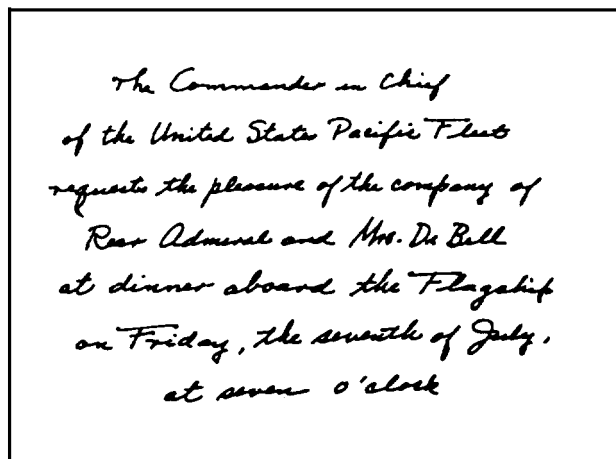 The Commander in Chief
of the United States Pacific Fleet
requests the pleasure of the company of
Rear Admiral and Mrs. De Bell
at dinner aboard the Flagship
on Friday, the seventh of July,
at seven o'clock